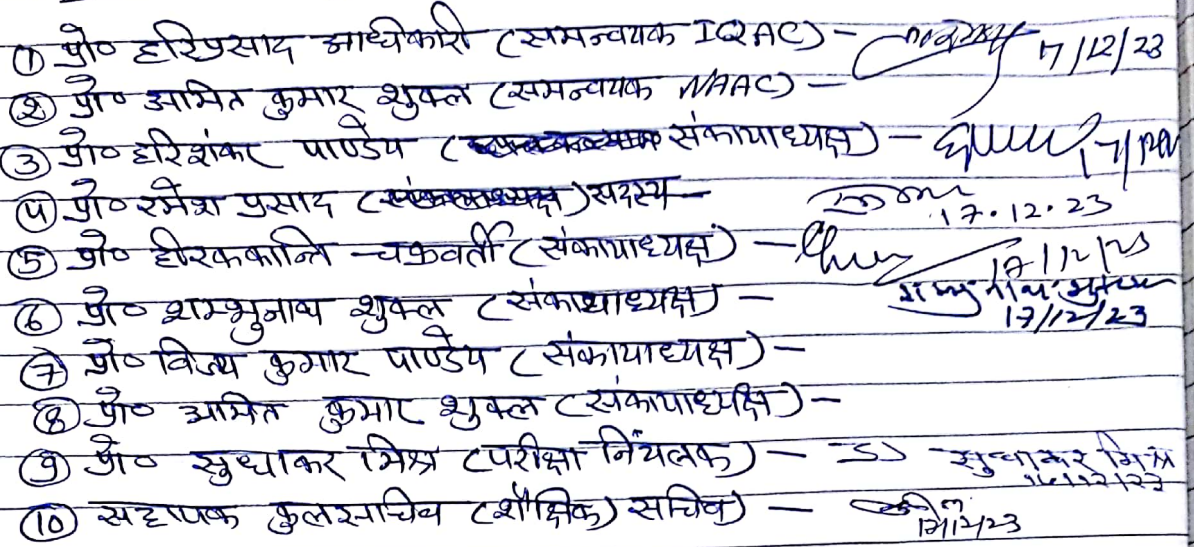 ① प्रो० हरिप्रसाद अधिकारी (समन्वयक IQAC) - 17/12/23
② प्रो० अमित कुमार शुक्ल (समन्वयक NAAC) -
③ प्रो० हरिशंकर पाण्डेय (संकायाध्यक्ष) -
④ प्रो० रमेश प्रसाद (संकायाध्यक्ष) सदस्य - 17.12.23
⑤ प्रो० हीरककान्ति चक्रवर्ती (संकायाध्यक्ष) - 17/12/23
⑥ प्रो० शम्भुनाथ शुक्ल (संकायाध्यक्ष) - शम्भुनाथ शुक्ल 17/12/23
⑦ प्रो० विजय कुमार पाण्डेय (संकायाध्यक्ष) -
⑧ प्रो० अमित कुमार शुक्ल (संकायाध्यक्ष) -
⑨ प्रो० सुधाकर मिश्र (परीक्षा नियंत्रक) - सुधाकर मिश्र
⑩ सहायक कुलसचिव (शैक्षिक) सचिव) - 17/12/23